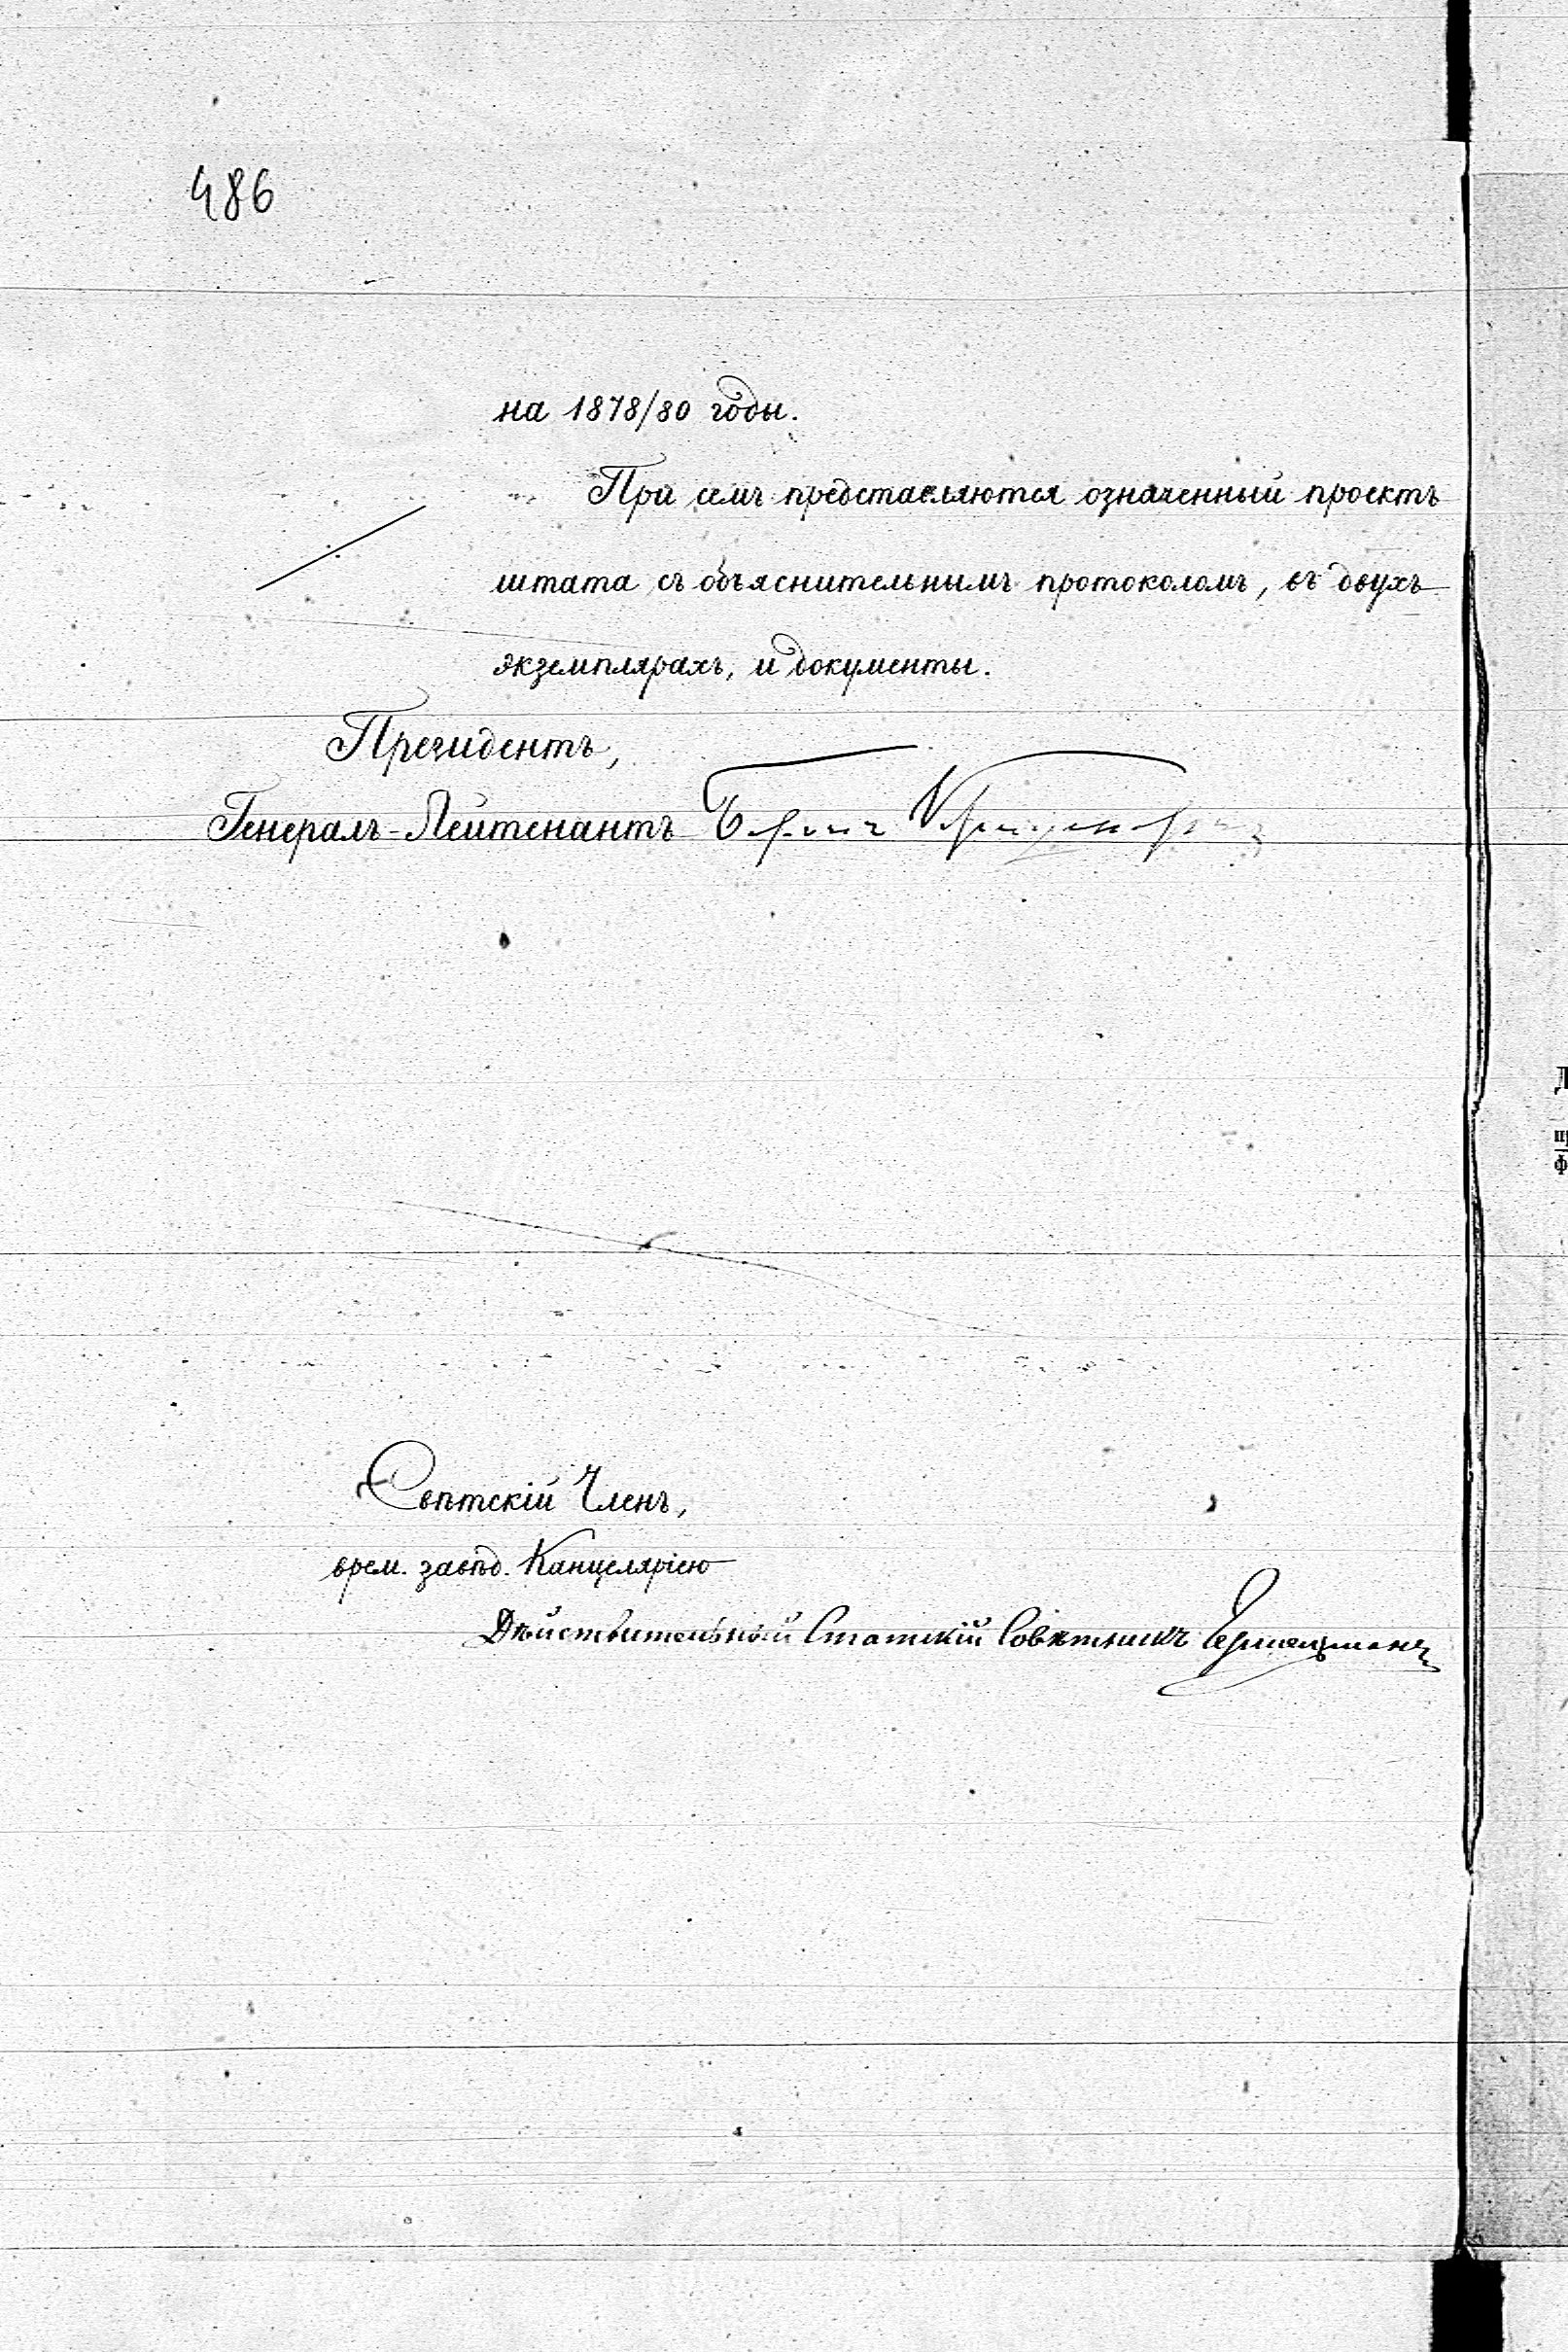 486
на 1878/80 годы.
При семъ представляются означенный проектъ
штата съ объяснительнымъ протоколомъ, въ двухъ
экземплярахъ, и документы.
Президентъ,
Генералъ-Лейтенантъ
Свѣтскій Членъ,
врем. завѣд. Канцеляріею
Дѣйствительный Статскій Совѣтникъ